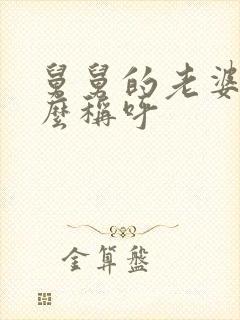 舅舅的老婆
麼稱呼
金算盤